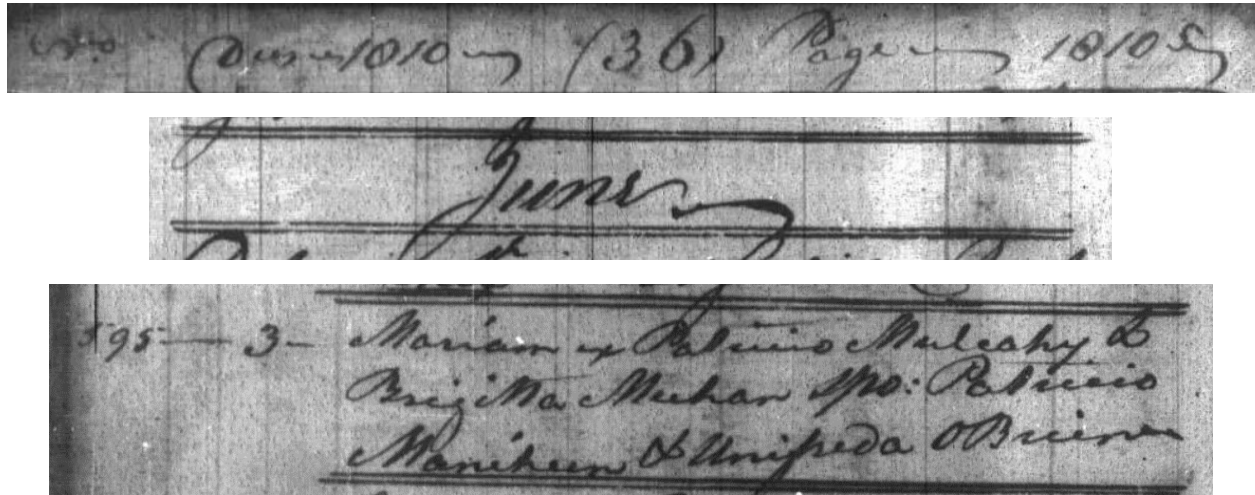 1810 (36) Page 1810
June
595 — 3 — Mariam ex Patricio Mulcahy &
Brigitta Meehan spo: Patricio
& Unifreda OBrien